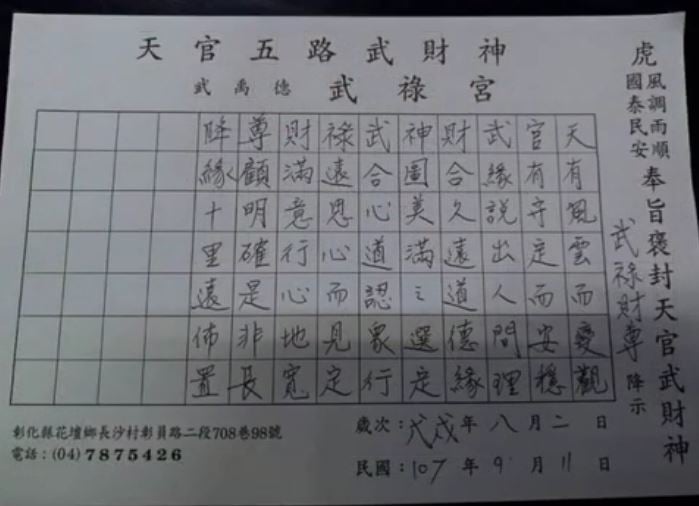 天官五路武財神
武禹德 武祿宮
虎
風調雨順
國泰民安
奉旨褒封天官武財神
武祿財尊 降示
天有風雲而變觀
官有守定而安穩
武緣說出人問理
財合久遠道德緣
神圖美滿之選定
武合心道認眾行
祿遠思心而見定
財滿意行心地寬
尊顧明確是非長
降緣十里遠佈置
歲次：戊戌年八月二日
民國：107年9月11日
彰化縣花壇鄉長沙村彰員路二段708巷98號
電話：(04)7875426